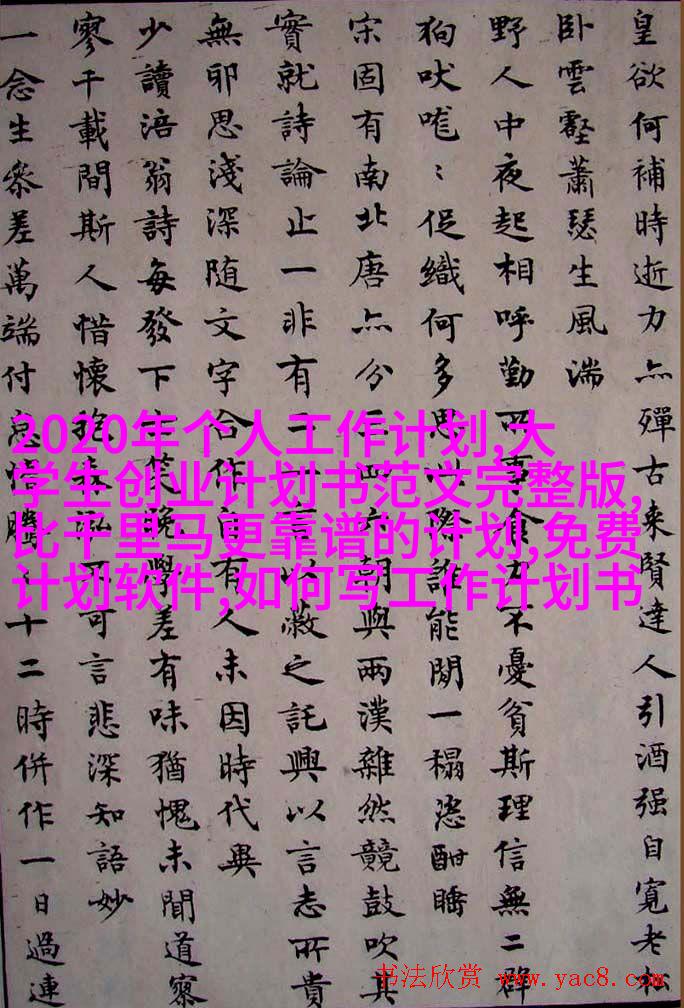 皇欲何補時逝力亦殫古來賢達人引酒强自寬老
卧雲壑蕭瑟生風湍
野人中夜起相呼勤而事食力不憂貧斯理信無二群
狗吠嘊〻促織何多思此際誰能閒一榻恣酣睡
宋固有南北唐亦分三四六朝與兩漢雜然競鼓吹其
實就詩論止一非有二一言以蔽之託興以言志所貴
無邪思淺深随文字合作自有人未因時代異
少讀涪翁詩每發下士笑晚學差有味猶愧未聞道寥
寥千載間斯人惜懷抱不可言悲深知語妙
一念生參差萬端付騰十二時併作一日過連
2020年个人工作计划,大
学生创业计划书范文完整版,
比千里马更靠谱的计划,免费
计划软件,如何写工作计划书
书法欣赏 www.yac8.com